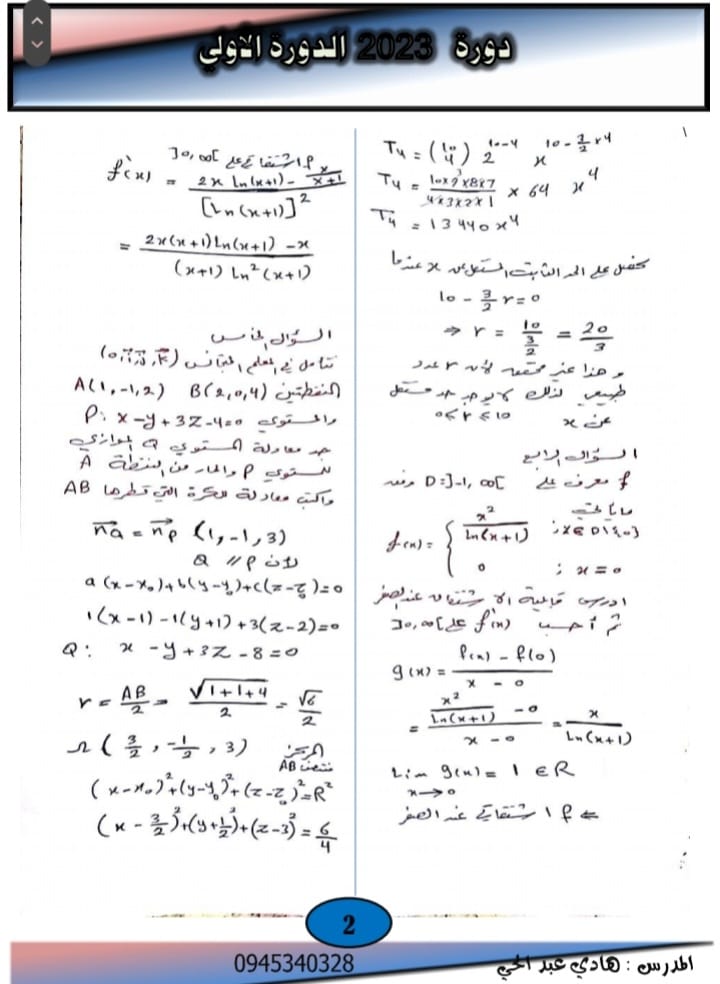 دورة 2023 الدورة الاولي
١
T₄ = (10 4) 2^(10-4) x^(10 - 3/2 × 4)
T₄ = (10×9×8×7)/(4×3×2×1) × 64 x⁴
T₄ = 13440 x⁴
نحصل على الحد الثابت المستقل عن x عندما
10 - 3/2 r = 0
⇒ r = 10/(3/2) = 20/3
و هذا غير محقق لأن r عدد
طبيعي لذلك لا يوجد حد مستقل
عن x 0 ≤ r ≤ 10
السؤال الرابع
f معرف على D = ]-1, ∞[ وفق
مايأتي
f(x) = { x²/ln(x+1) ; x ∈ D\{0}
0 ; x = 0
ادرس قابلية الاشتقاق عند الصفر
ثم أحسب f'(x) على ]0, ∞[
g(x) = (f(x) - f(0))/(x - 0)
= (x²/ln(x+1) - 0)/(x - 0) = x/ln(x+1)
Lim g(x) = 1 ∈ R
x→0
⇐ f اشتقاقي عند الصفر
f اشتقاقي على ]0, ∞[
f'(x) = (2x ln(x+1) - x²/(x+1))/[Ln(x+1)]²
= (2x(x+1) Ln(x+1) - x)/((x+1) Ln²(x+1))
السؤال الخامس
نتأمل في المعلم المتجانس (o, i, j, k)
النقطتين A(1, -1, 2) B(2, 0, 4)
والمستوي P: x - y + 3z - 4 = 0
جد معادلة المستوي Q الموازي
للمستوي P والمار من النقطة A
واكتب معادلة الكرة التي قطرها AB
n⃗Q = n⃗p (1, -1, 3)
لأن Q // P
a(x - x₀) + b(y - y₀) + c(z - z₀) = 0
1(x - 1) - 1(y + 1) + 3(z - 2) = 0
Q: x - y + 3z - 8 = 0
r = AB/2 = √(1+1+4)/2 = √6/2
Ω(3/2, -1/2, 3) المركز
منتصف AB
(x - x₀)² + (y - y₀)² + (z - z₀)² = R²
(x - 3/2)² + (y + 1/2)² + (z - 3)² = 6/4
2
0945340328
المدرس : هادي عبد الحي